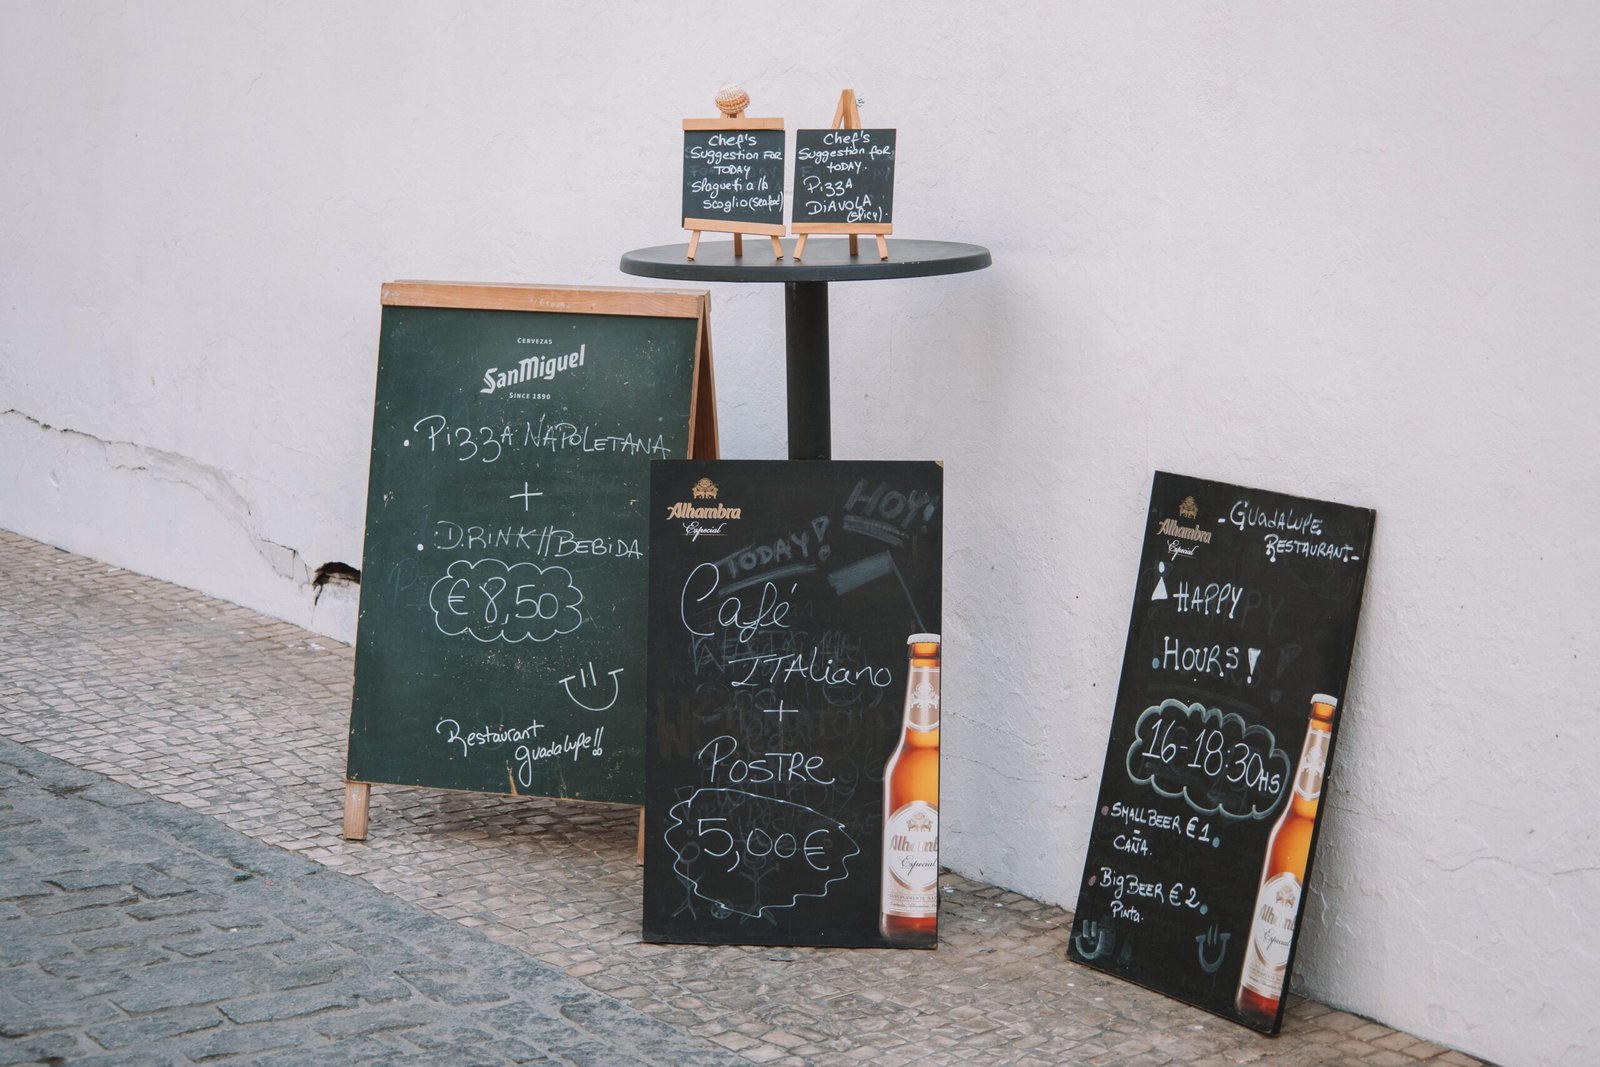 Chef's
Suggestion for
TODAY
Slagueti a la
Scoglio (seafood)
Chef's
Suggestion for
TODAY.
Pizza
DIAVOLA
(spicy).
CERVEZAS
SanMiguel
SINCE 1890
. Pizza NAPOLETANA
+
. DRINK // BEBIDA
€ 8,50
Restaurant
guadalupe!!
Alhambra
Especial
HOY!
TODAY!
Café
ITAliano
+
POSTRE
5,00€
Alhambra
Especial
Alhambra
Especial
- GUADALUPE
RESTAURANT -
HAPPY
HOURS!
16-18:30HS
SMALL BEER € 1.
CAÑA.
BIG BEER € 2.
Pinta.
Especial